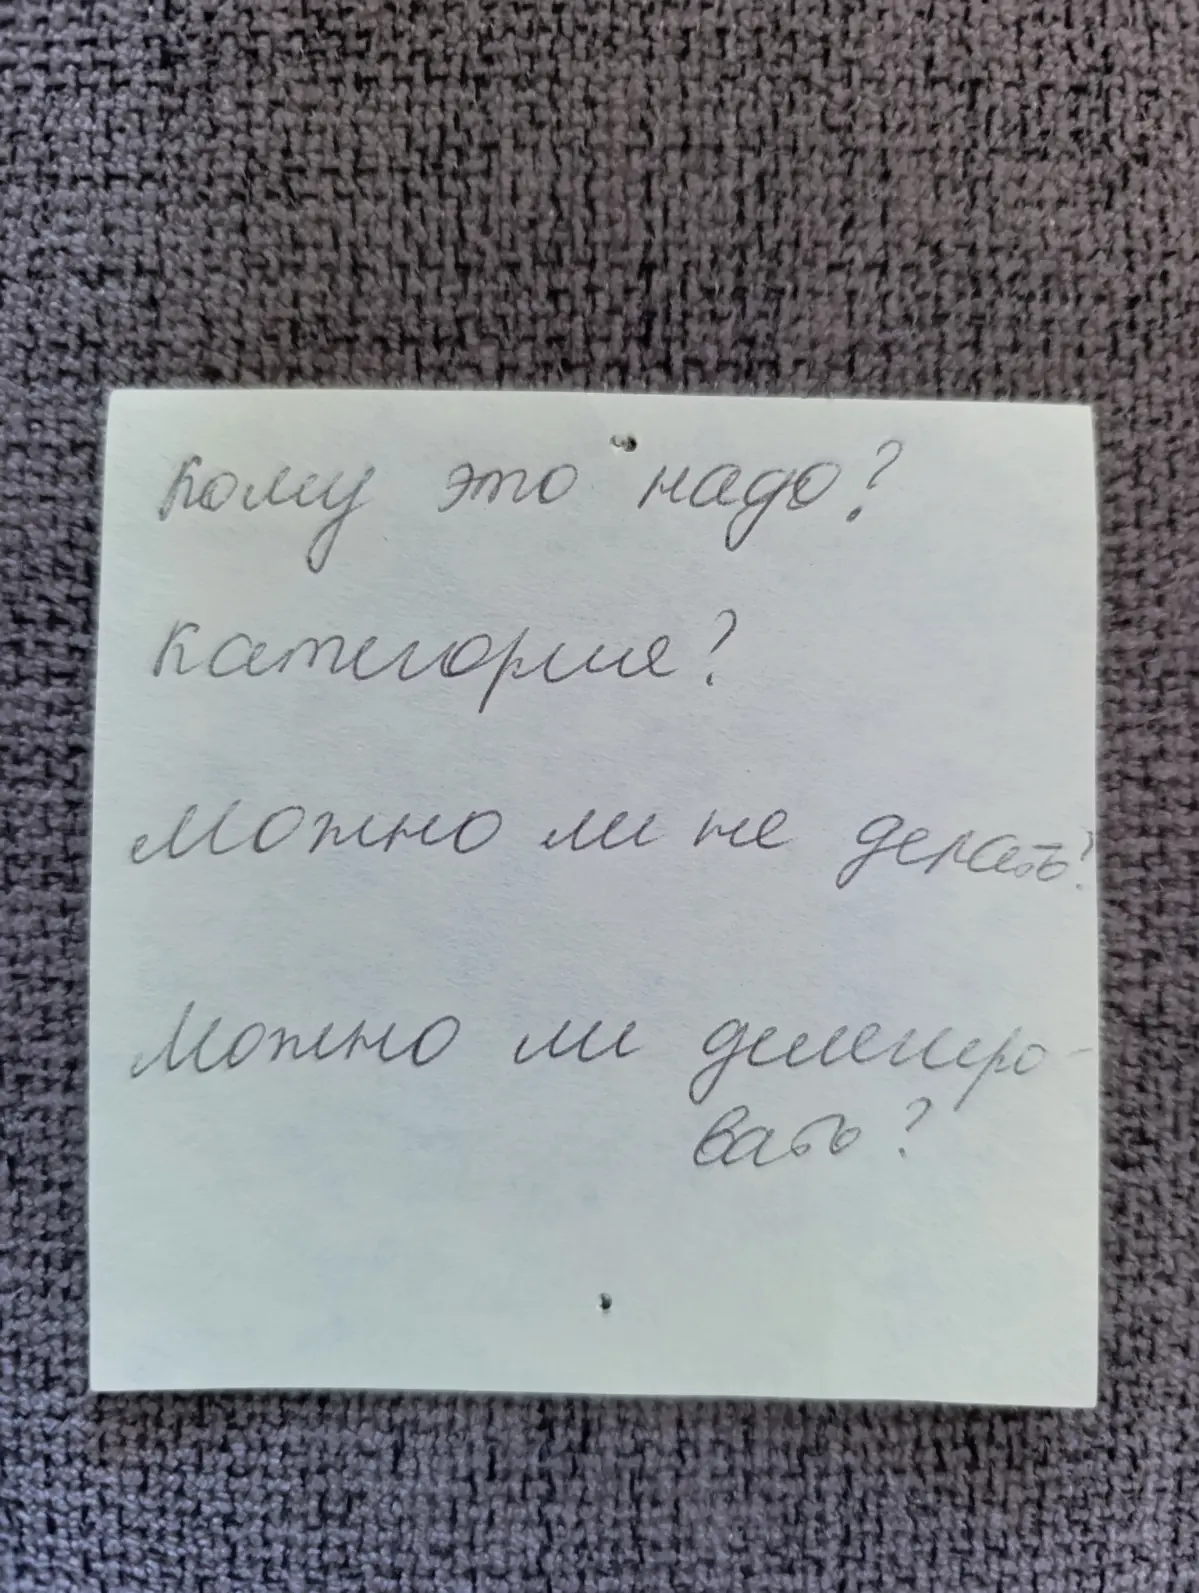 Кому это надо?
Категория?
Можно ли не делать?
Можно ли делегиро-
вать?